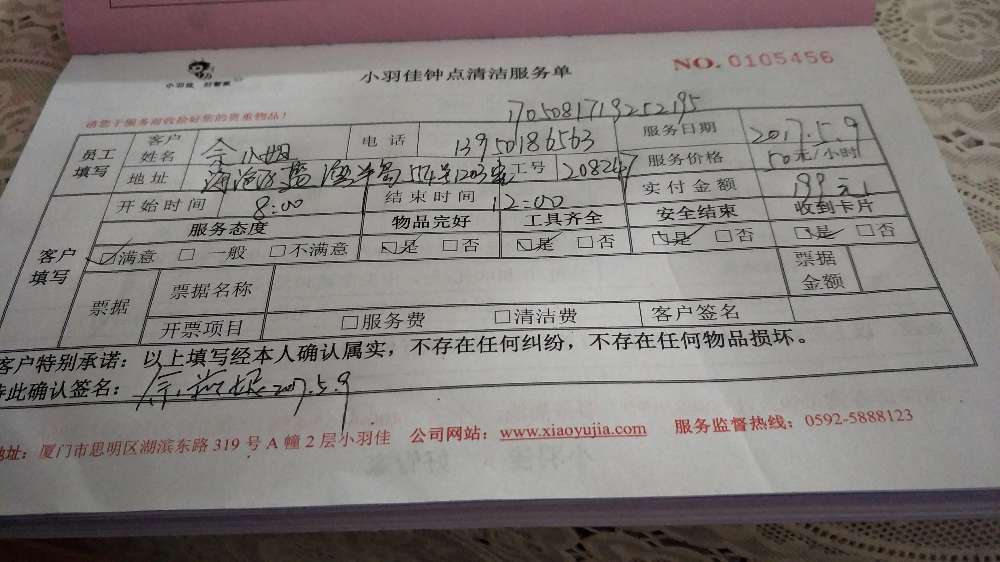 小羽佳 好管家
小羽佳钟点清洁服务单
NO. 0105456
请您于服务前收拾好您的贵重物品！
1705081719252195
员工填写 客户姓名 余小姐 电话 13950186563 服务日期 2017.5.9
地址 海沧 1203 工号 208247 服务价格 50元/小时
开始时间 8:00 结束时间 12:00 实付金额 199元
客户填写 服务态度 物品完好 工具齐全 安全结束 收到卡片
☑满意 □一般 □不满意 ☑是 □否 ☑是 □否 ☑是 □否 ☑是 □否
票据 票据名称 票据金额
开票项目 □服务费 □清洁费 客户签名
客户特别承诺：以上填写经本人确认属实，不存在任何纠纷，不存在任何物品损坏。
特此确认签名： 2017.5.9
地址：厦门市思明区湖滨东路 319 号 A 幢 2 层小羽佳 公司网站：www.xiaoyujia.com 服务监督热线：0592-5888123